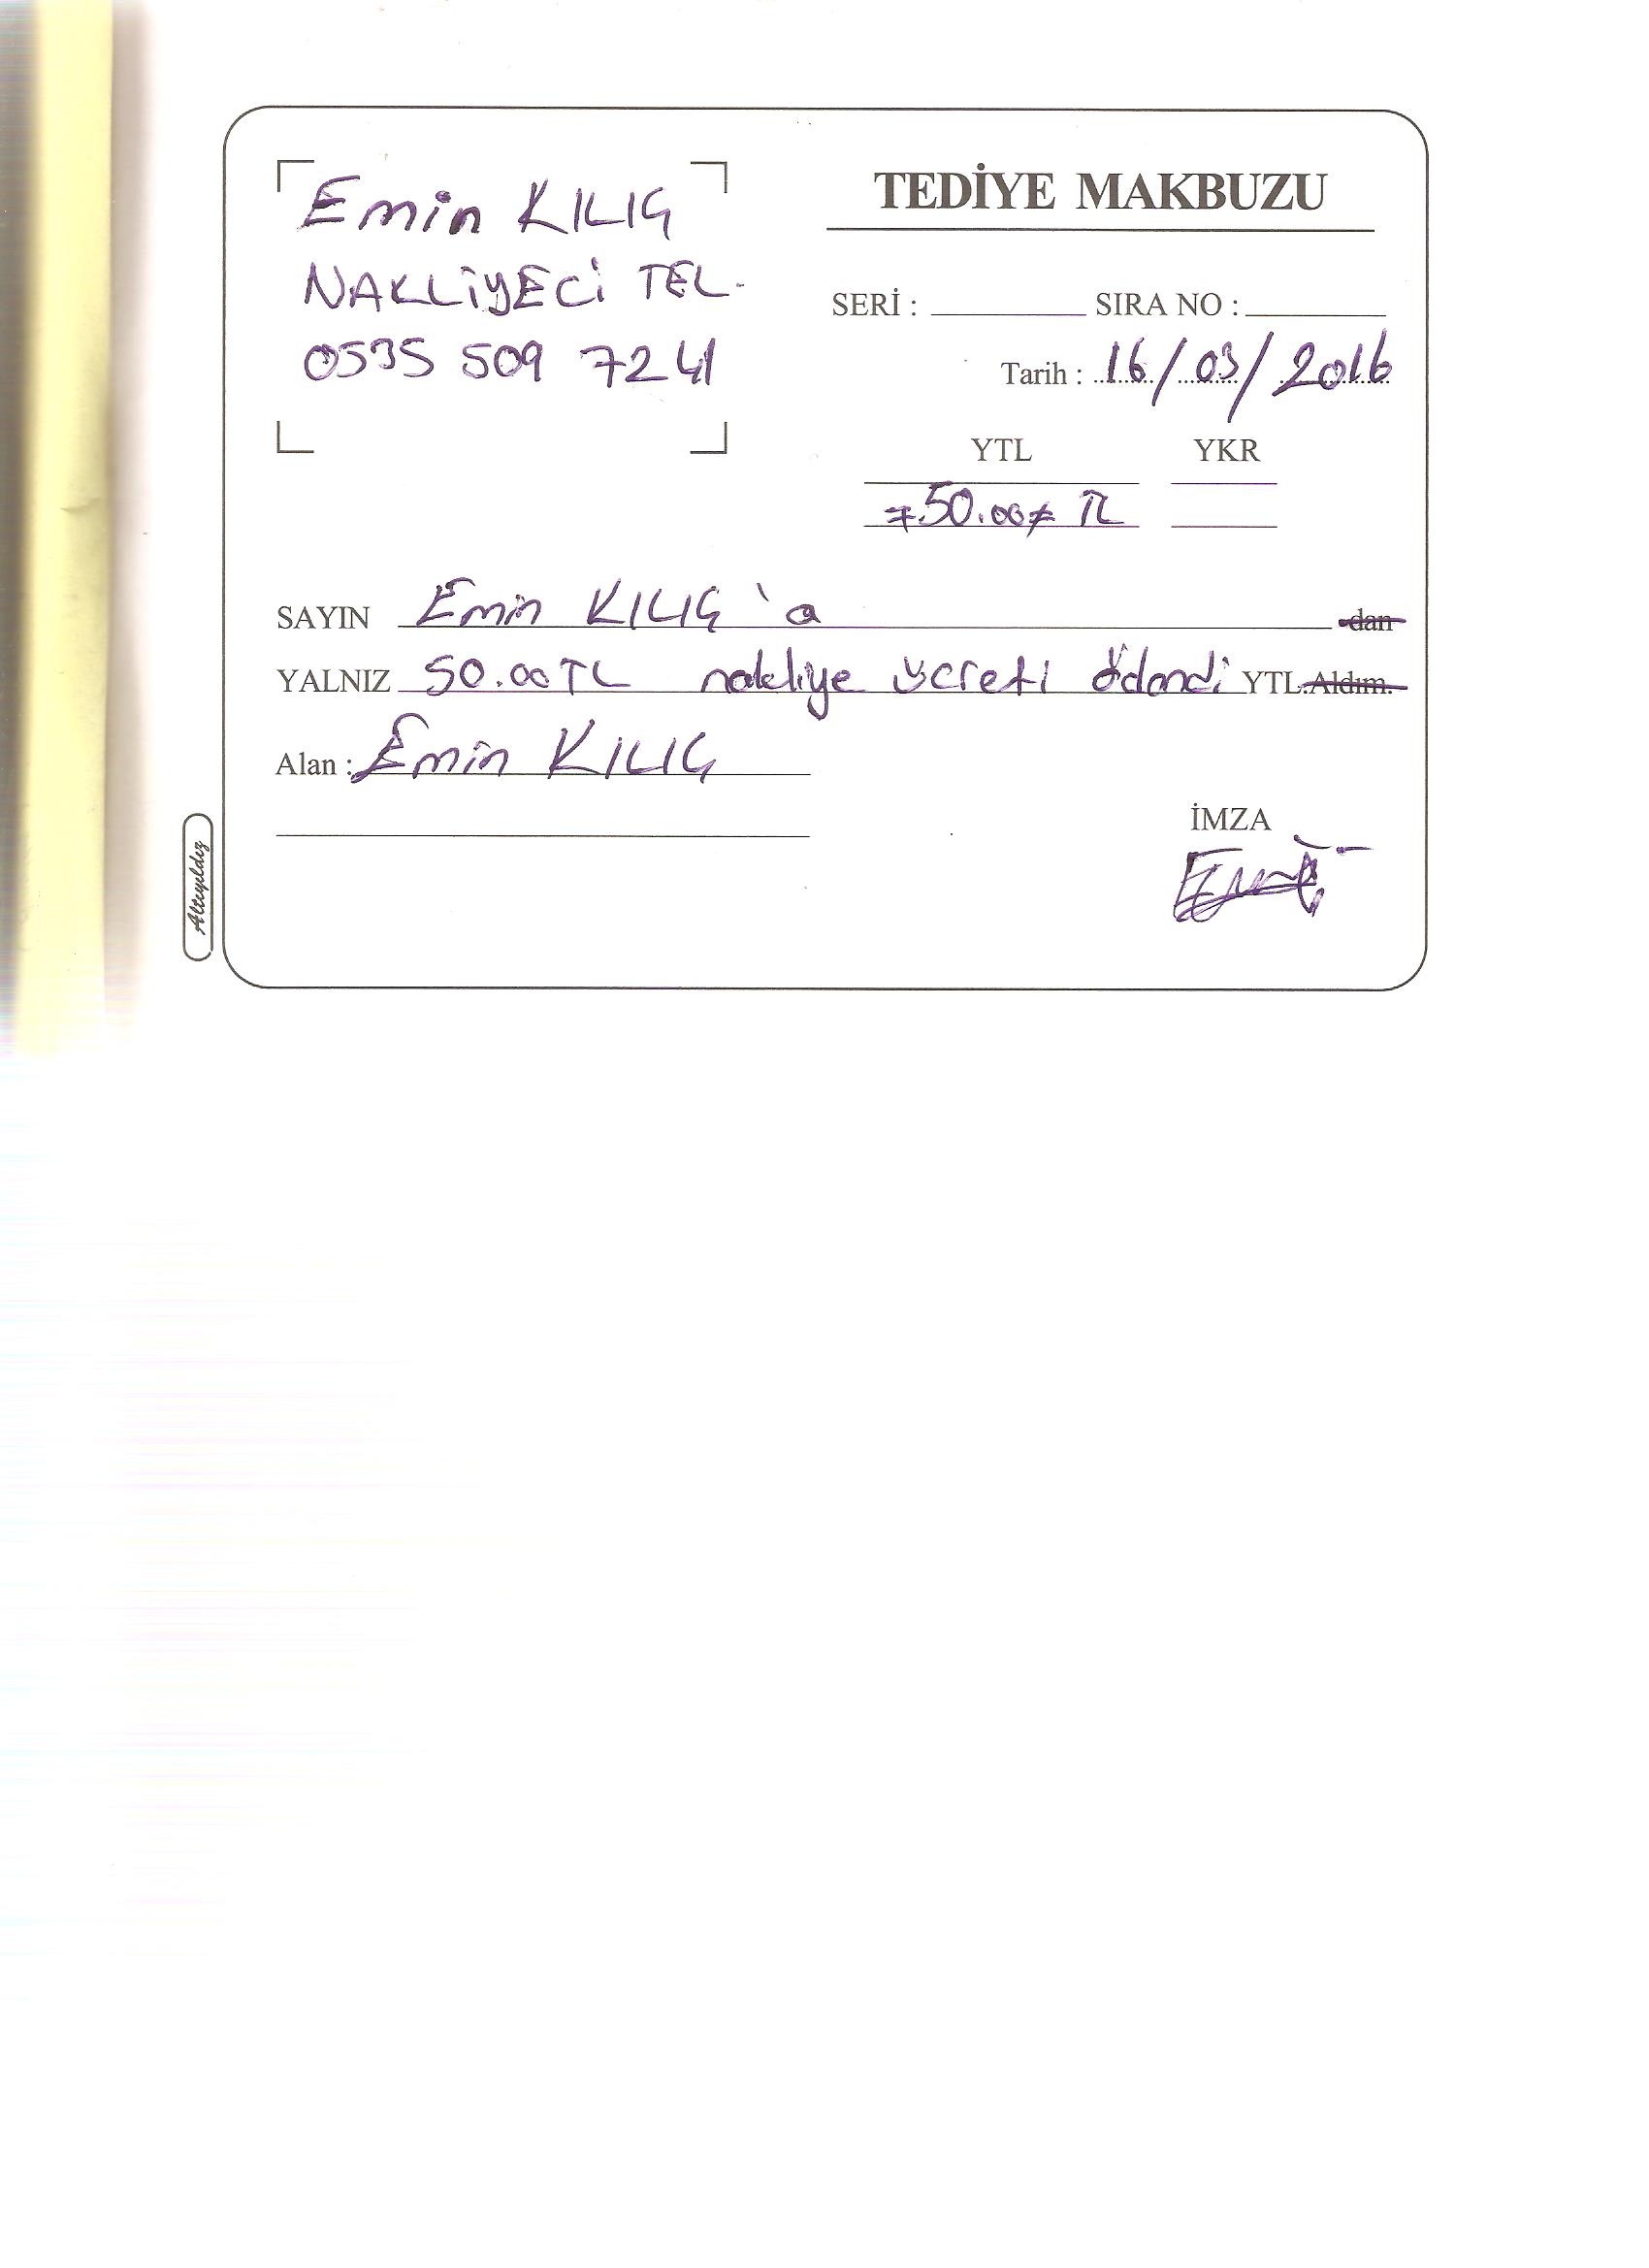 Emin KILIÇ
NAKLİYECİ TEL.
0535 509 7241
TEDİYE MAKBUZU
SERİ : SIRA NO :
Tarih : 16/03/2016
YTL YKR
≠50.00≠ TL
SAYIN Emin KILIÇ'a dan
YALNIZ 50.00 TL nakliye ücreti ödendi YTL.Aldım.
Alan : Emin KILIÇ
İMZA
Altıyıldız